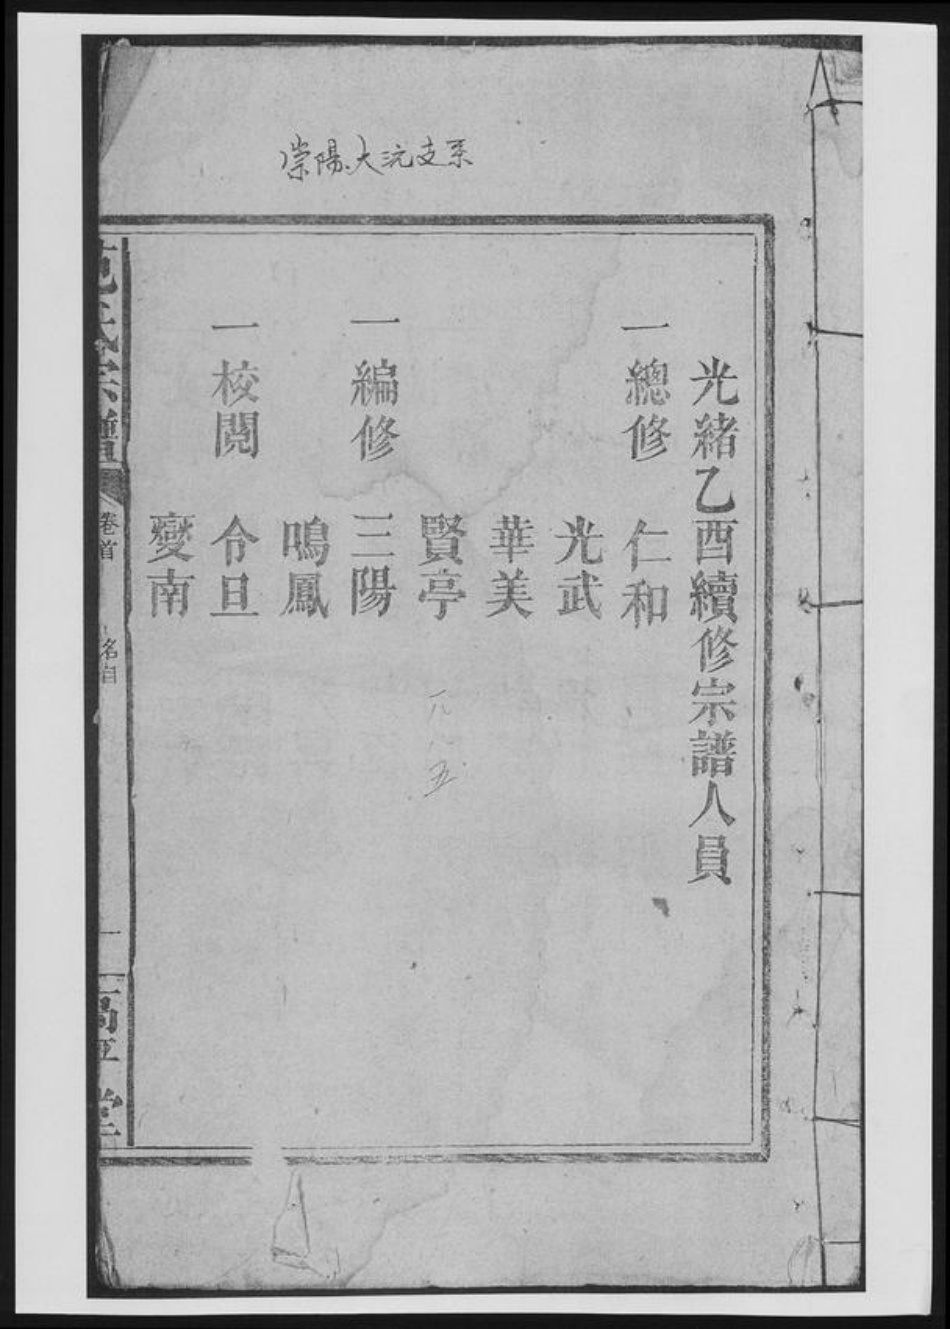 崇陽大沅支系
光緒乙酉續修宗譜人員
一總修 仁和
光武
華美
賢亭
一編修 三陽
鳴鳳
一校閱 令旦
燮南
范氏宗譜
卷首
名目
一
高平堂